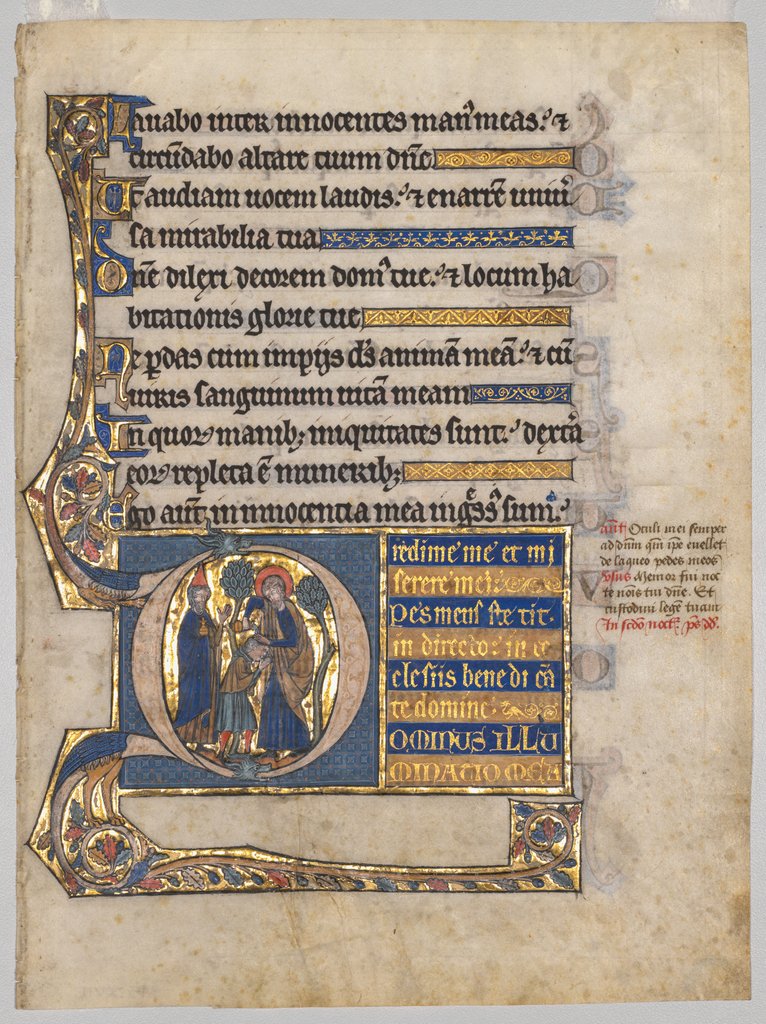 Lauabo inter innocentes man᾿ meas.᾿ ⁊
circūdabo altare tuum dn̄e
Ut audiam uocem laudis.᾿ ⁊ enarrē uniu᾿
sa mirabilia tua
Dn̄e dilexi decorem dom᾿ tue.᾿ ⁊ locum ha
bitationis glorie tue
Ne ꝑdas cum impijs d̄s animā meā.᾿ ⁊ cū
uiris sanguinum uitā meam
In quoꝝ manibꝫ iniquitates sunt.᾿ dextā
eoꝝ repleta ē muneribꝫ
Ego aut̄ in innocentia mea inḡss᾿ sum.᾿
redime me et mi
serere mei
Pes meus ste tit
in directo in ec
clesiis bene di cā
te domine
DOMINUS ILLU
MINATIO MEA
ant̄ Oculi mei semper
ad dn̄m qm̄ ip̄e euellet
de laqueo pedes meos
v̄sus Memor fui noc
te nōis tui dn̄e. Et
custodiui legē tuam
In sc̄do noct̄.